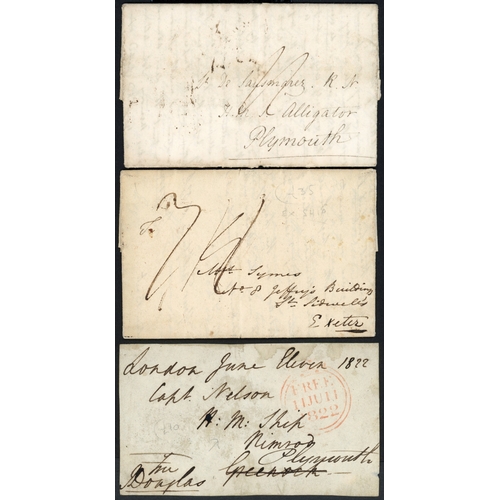 R N
H M S Alligator
Plymouth
To
Mrs Symes
No 8 Jeffry's Building
St Sidwell's
Exeter
London June Eleven 1822
Capt. Nelson
H: M: Ship
Nimrod
Plymouth
Greenock
Free
Douglas
FREE
11 JU 11
1822